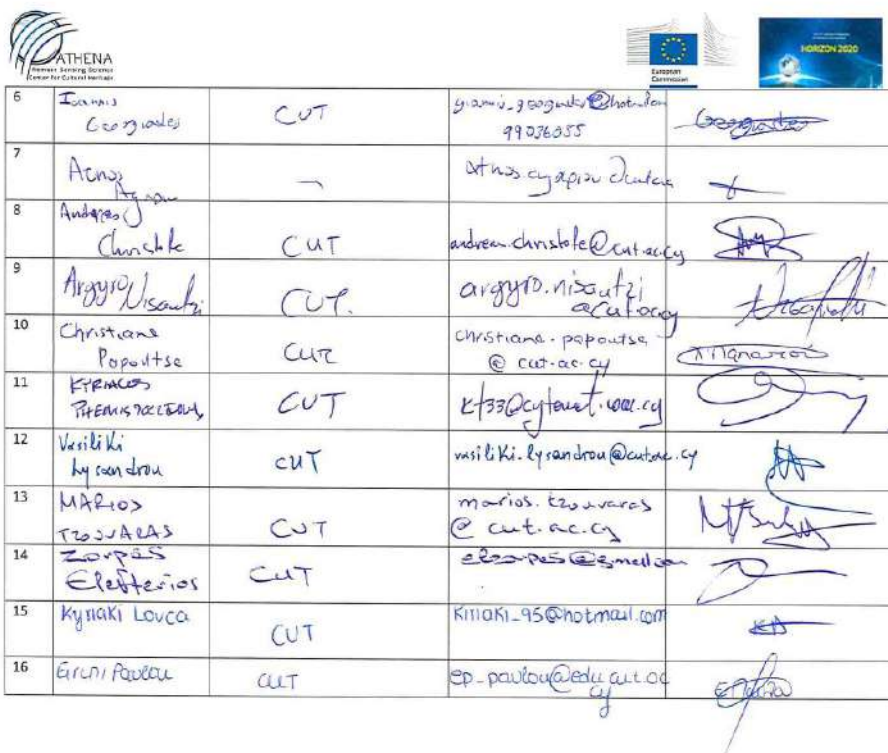 ATHENA
Remote Sensing Science
Center for Cultural Heritage
European
Commission
HORIZON 2020
6 Ioannis
Georgiades CUT
99036055
7 Athos
8 Andreas
Christofe CUT andreas.christofe@cut.ac.cy
9 Argyro Nisantzi CUT. argyro.nisantzi
@cut.ac.cy
10 Christiana
Papoutsa CUT christiana.papoutsa
@ cut.ac.cy
11 KYRIACOS
THEMISTOCLEOUS CUT
12 Vasiliki
Lysandrou CUT vasiliki.lysandrou@cut.ac.cy
13 MARIOS
TZOUVARAS CUT marios.tzouvaras
@ cut.ac.cy
14 Zorpas
Elefterios CUT
15 Kyriaki Louca CUT kiriaki_95@hotmail.com
16 Eireni Pavlou CUT ep_pavlou@edu.cut.ac
cy